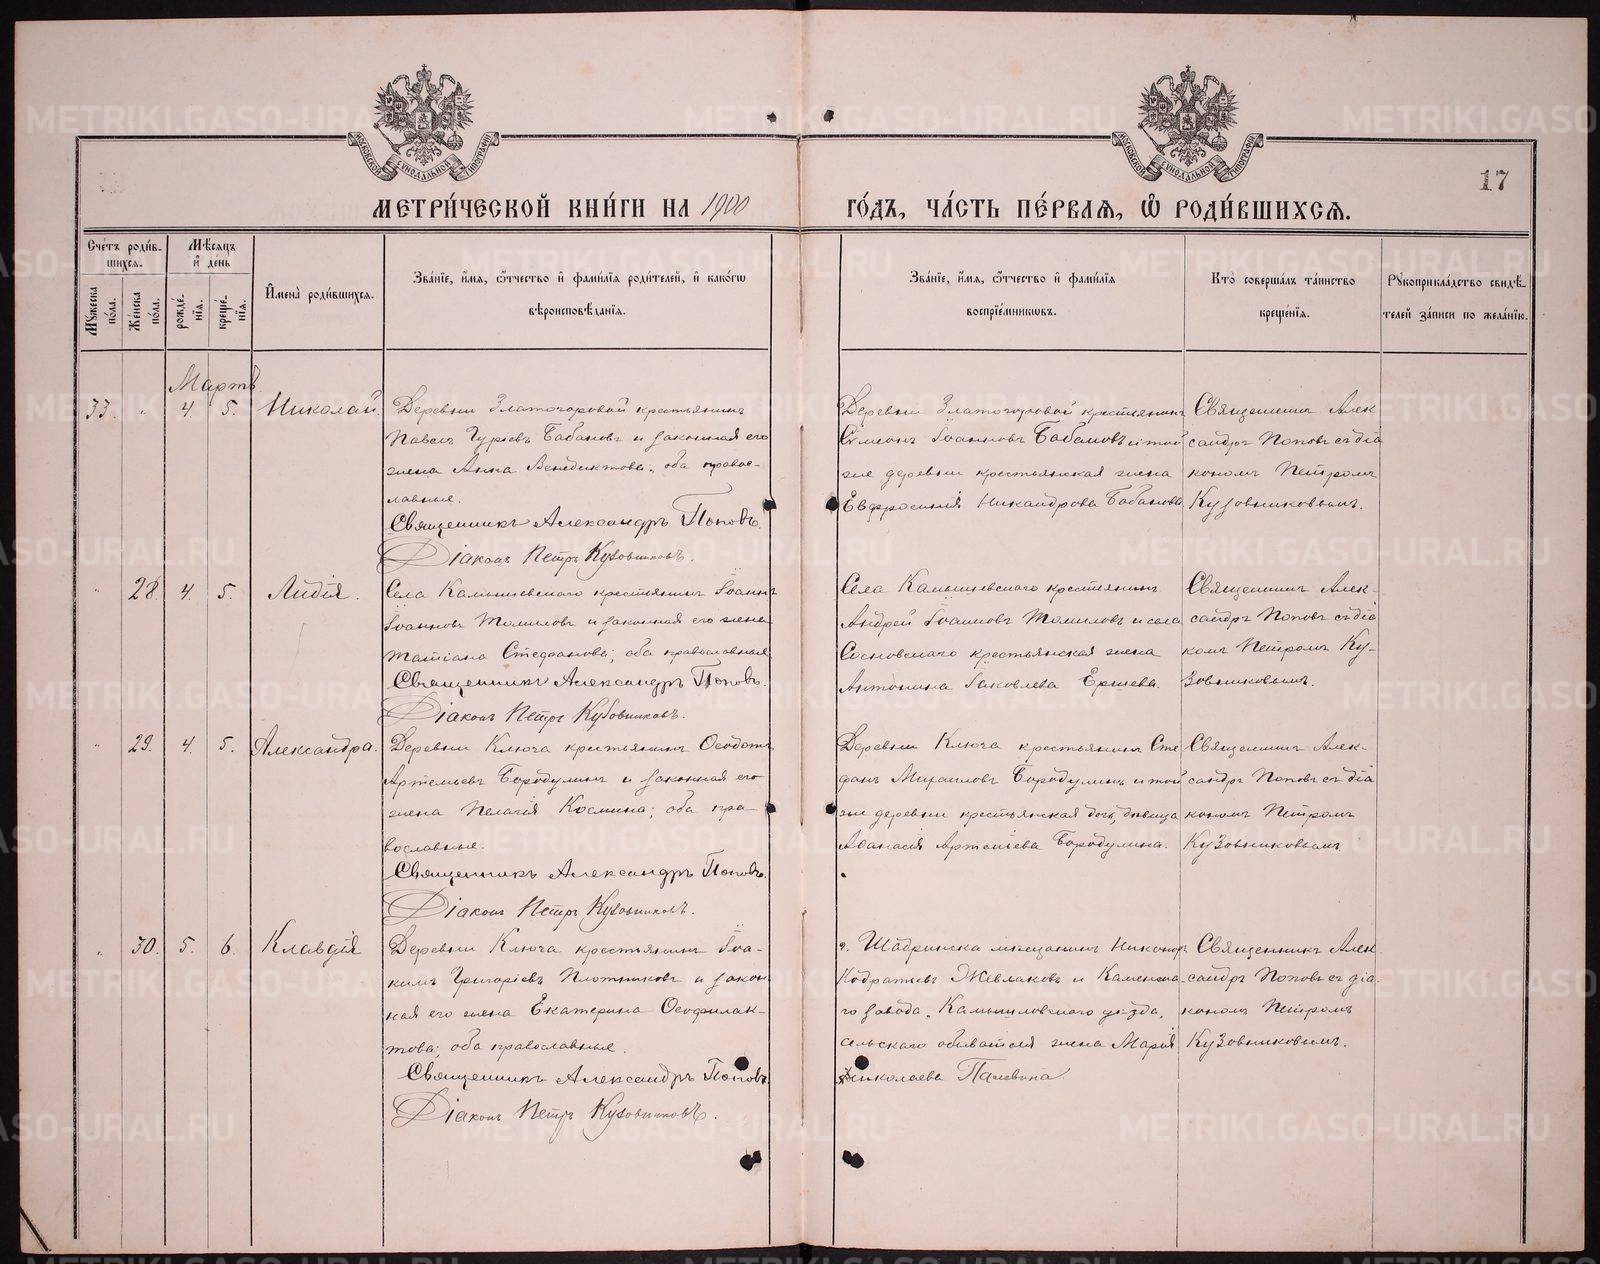 17
МЕТРИ́ЧЕСКОЙ КНИ́ГИ НА 1900
ГО́ДЪ, ЧА́СТЬ ПЕ́РВАѦ, Ѡ҆ РОДИ́ВШИХСѦ.
Сче́тъ роди́в-
шихсѧ.
Мѣ́сѧцъ
и҆ де́нь
Мꙋ́жеска
по́ла.
Же́нска
по́ла.
рожде́-
нїѧ.
креще́-
нїѧ.
И҆мена̀ роди́вшихсѧ.
Зва́нїе, и҆́мѧ, ѻ҆́тчество и҆ фами́лїѧ роди́телей, и҆ како́гѡ
вѣроисповѣ́данїѧ.
Зва́нїе, и҆́мѧ, ѻ҆́тчество и҆ фами́лїѧ
воспрїе́мникѡвъ.
Кто̀ соверша́лъ та́инство
креще́нїѧ.
Рꙋкоприкла́дство свидѣ́-
телей за́писи по жела́нїю.
Мартъ
33. " 4. 5. Николай
Деревни Златогоровой крестьянинъ
Павелъ Гурiевъ Бабановъ и законная его
жена Анна Венедиктова, оба право-
славные.
Священникъ Александръ Поповъ.
Дiаконъ Петръ Кузовниковъ.
Деревни Златогоровой крестьянинъ
Симеонъ Iоанновъ Бабановъ и той
же деревни крестьянская жена
Евфросинiя Никандрова Бабанова
Священникъ Алек
сандръ Поповъ съ дiа
кономъ Петромъ
Кузовниковымъ.
" 28. 4. 5. Лидiя.
Села Камышевскаго крестьянинъ Iоаннъ
Iоанновъ Томиловъ и законная его жена
Татiана Стефанова; оба православные
Священникъ Александръ Поповъ.
Дiаконъ Петръ Кузовниковъ.
Села Камышевскаго крестьянинъ
Андрей Iоанновъ Томиловъ и села
Сосновскаго крестьянская жена
Антонина Iаковлева Ершева.
Священникъ Алек-
сандръ Поповъ съ дiа
комъ Петромъ Ку-
зовниковымъ.
" 29. 4. 5. Александра.
Деревни Ключа крестьянинъ Ѳеодотъ
Артемьевъ Бородулинъ и законная его
жена Пелагiя Космина; оба пра-
вославные.
Священникъ Александръ Поповъ.
Дiаконъ Петръ Кузовниковъ.
Деревни Ключа крестьянинъ Сте
фанъ Михаиловъ Бородулинъ и той
же деревни крестьянская дочь, дѣвица
Аѳанасiя Артемiева Бородулина.
Священникъ Алек-
сандръ Поповъ съ дiа
кономъ Петромъ
Кузовниковымъ
" 30. 5. 6. Клавдiя
Деревни Ключа крестьянинъ Iоа-
кимъ Григорiевъ Плотниковъ и закон
ная его жена Екатерина Ѳеофилак-
това; оба православные.
Священникъ Александръ Поповъ.
Дiаконъ Петръ Кузовниковъ.
г. Шадринска мещанинъ Никоноръ
Кодратiевъ Жевлаковъ и Каменска-
го завода, Камышловскаго уѣзда,
сельскаго обывателя жена Марiя
Николаева Палевина.
Священникъ Алек
сандръ Поповъ съ дiа-
кономъ Петромъ
Кузовниковымъ.